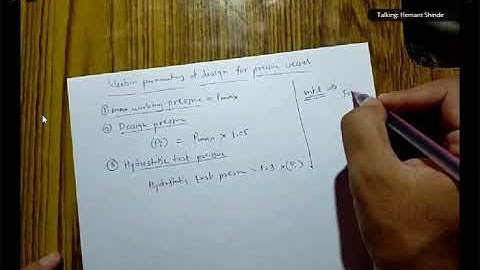 Talking: Hemant Shinde
Selection parameters of design for pressure vessel
① max working pressure = Pmax
② Design pressure
(Pi) = Pmax × 1.05
③ Hydrostatic test pressure
Hydrostatic test pressure = 1.3 × (Pi)